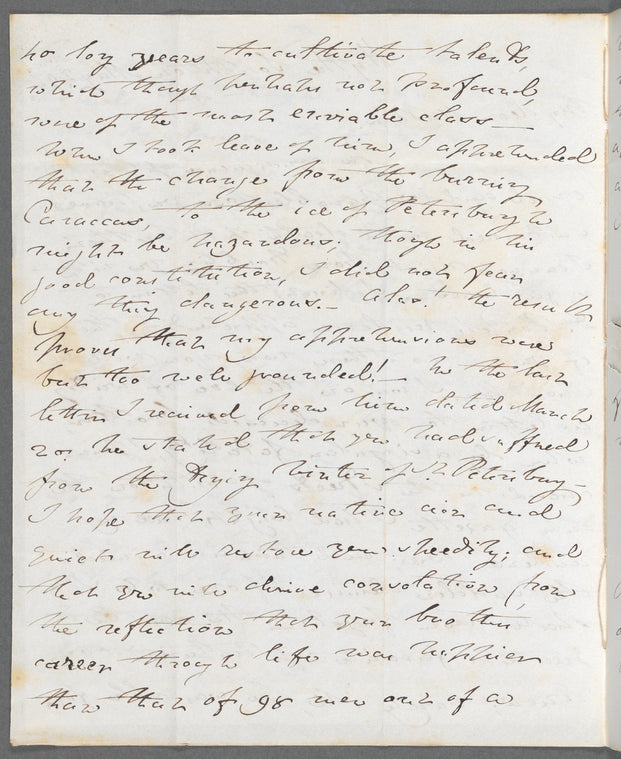 so long years to cultivate talents,
which though perhaps not profound,
were of the most enviable class —
When I took leave of him, I apprehended
that the change from the burning
Caraccas, to the ice of Petersburgh
might be hazardous: though in his
good constitution, I did not fear
any thing dangerous. — Alas! the result
proves that my apprehensions were
but too well grounded! — In the last
letter I received from him dated March
20. he stated that you had suffered
from the trying winter of St. Petersburg —
I hope that your native air and
quiet will restore you speedily; and
that you will derive consolation from
the reflection that your brother's
career through life was happier
than that of 98 men out of a